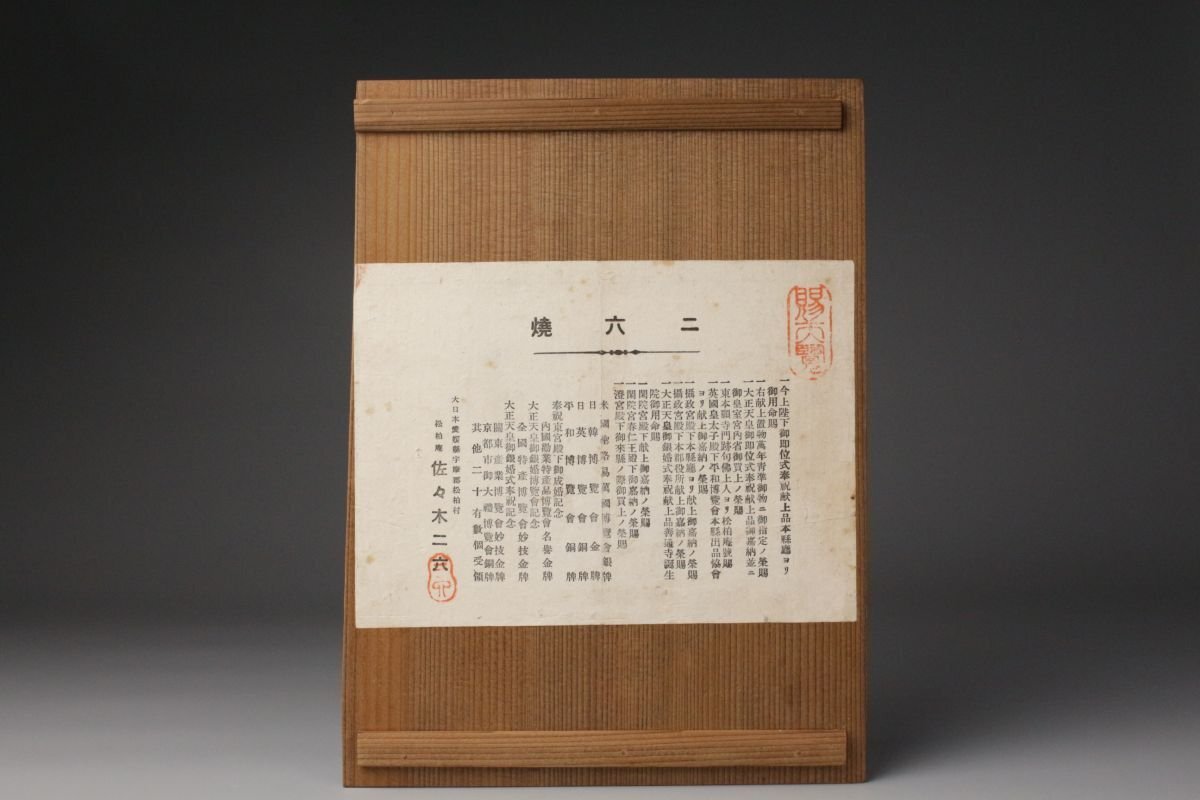 二六燒
賜天覽
一今上陛下御即位式奉祝献上品本縣廳ヨリ
御用命賜
一右献上置物萬年靑準御物ニ御指定ノ榮賜
一大正天皇御即位式奉祝献上品御嘉納並ニ
御皇室宮内省御買上ノ榮賜
一東本願寺門跡句佛上人ヨリ松柏庵號賜
一英國皇太子殿下平和博覽會本縣出品協會
ヨリ献上御嘉納ノ榮賜
一攝政宮殿下本縣廳ヨリ献上御嘉納ノ榮賜
一攝政宮殿下本郡役所献上御嘉納ノ榮賜
一大正天皇御銀婚式奉祝献上品善通寺誕生
院御用命賜
一閑院宮殿下献上御嘉納ノ榮賜
一閑院宮春仁王殿下御嘉納ノ榮賜
一澄宮殿下御來縣ノ際御買上ノ榮賜
米國聖路易萬國博覽會銀牌
日韓博覽會金牌
日英博覽會銅牌
平和博覽會銅牌
奉祝東宮殿下御成婚記念
内國勸業特產品博覽會名譽金牌
大正天皇御銀婚博覽會記念
全國特產博覽會妙技金牌
大正天皇御銀婚式奉祝記念
關東產業博覽會妙技金牌
京都市御大禮博覽會銅牌
其他二十有數個受領
大日本愛媛縣宇摩郡松柏村
松柏庵 佐々木二六